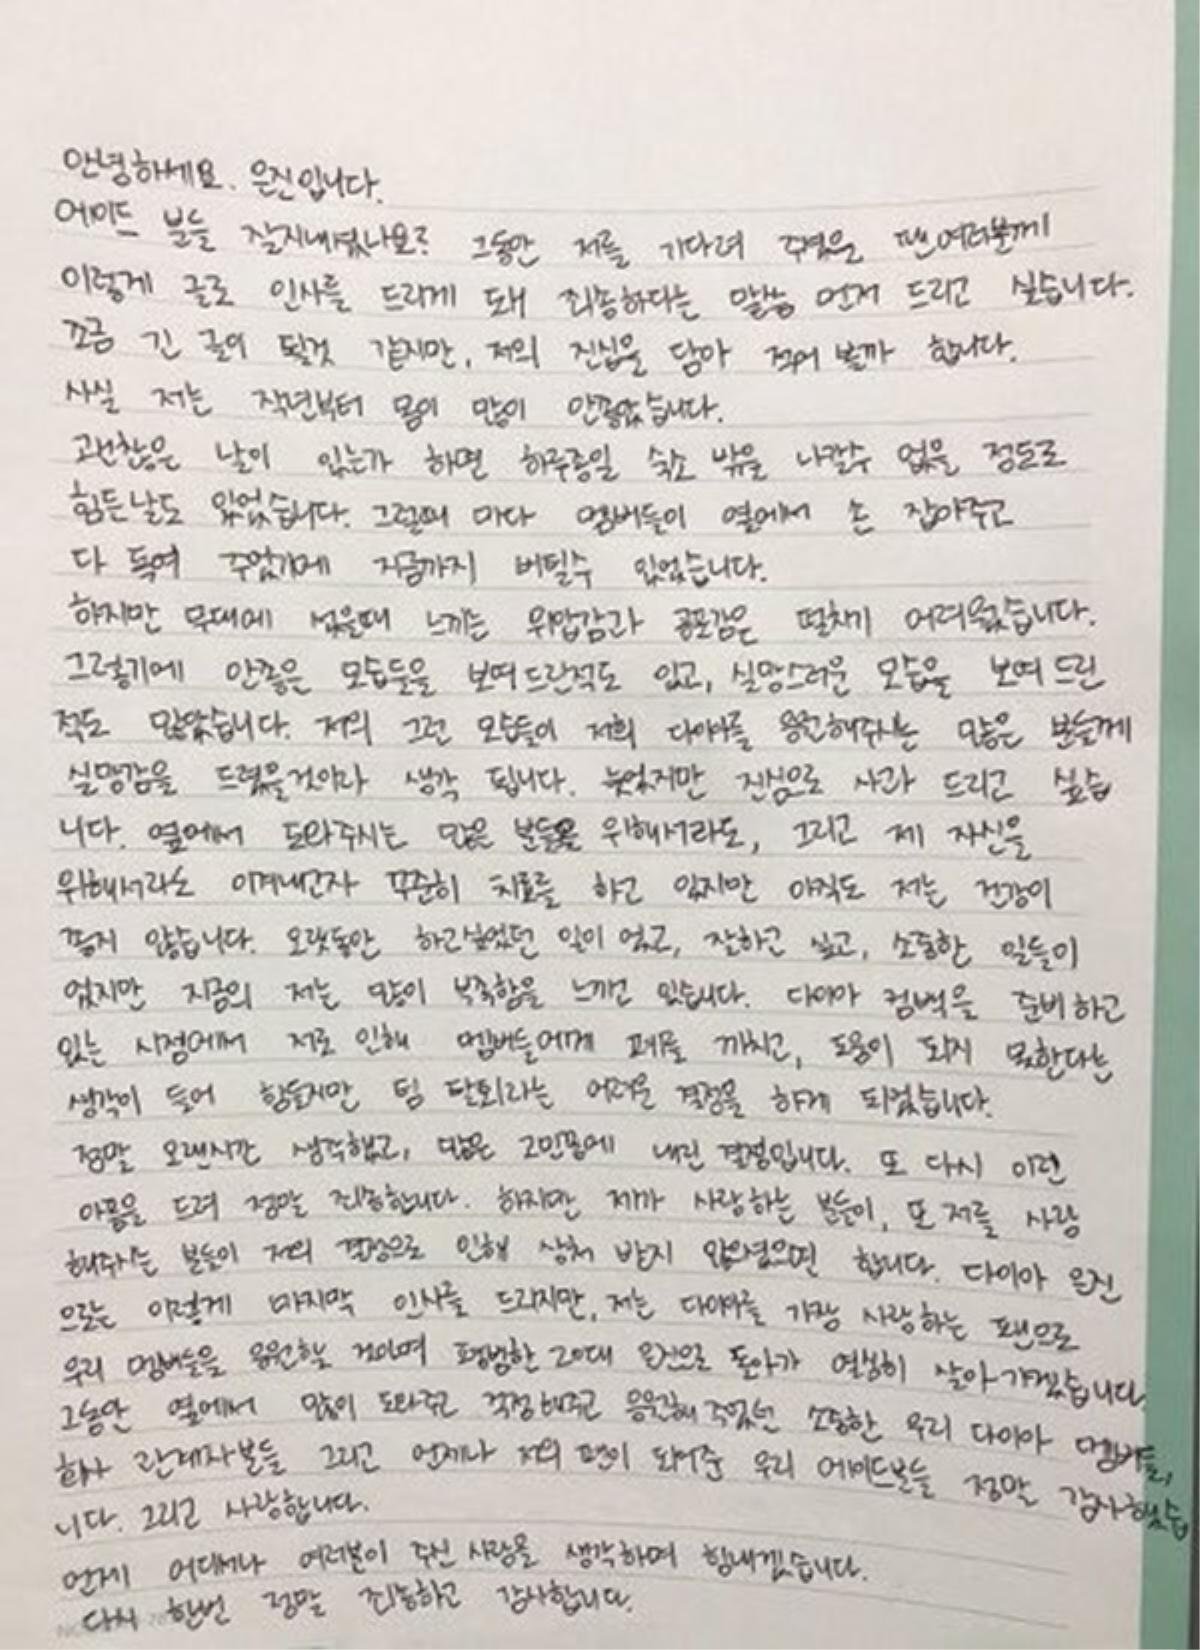 안녕하세요. 은진입니다.
에이드 분들 잘지내셨나요? 그동안 저를 기다려 주셨을 팬여러분께
이렇게 글로 인사를 드리게 돼 죄송하다는 말씀 먼저 드리고 싶습니다.
조금 긴 글이 될것 같지만, 저의 진심을 담아 적어 볼까 합니다.
사실 저는 작년부터 몸이 많이 안좋았습니다.
괜찮은 날이 있는가 하면 하루종일 숙소 밖을 나갈수 없을 정도로
힘든날도 있었습니다. 그럴때 마다 멤버들이 옆에서 손 잡아주고
다 독여 주었기에 지금까지 버틸수 있었습니다.
하지만 무대에 섰을때 느끼는 위압감과 공포감은 떨치기 어려웠습니다.
그렇기에 안좋은 모습들을 보여드린적도 있고, 실망스러운 모습을 보여드린
적도 많았습니다. 저의 그런 모습들이 저희 다이아를 응원해주시는 많은 분들께
실망감을 드렸을것이라 생각 됩니다. 늦었지만 진심으로 사과 드리고 싶습
니다. 옆에서 도와주시는 많은 분들을 위해서라도, 그리고 제 자신을
위해서라도 이겨내고자 꾸준히 치료를 하고 있지만 아직도 저는 건강이
좋지 않습니다. 오랫동안 하고싶었던 일이 었고, 잘하고 싶고, 소중한 일들이
었지만 지금의 저는 많이 부족함을 느끼고 있습니다. 다이아 컴백을 준비하고
있는 시점에서 저로 인해 멤버들에게 폐를 끼치고, 도움이 되지 못한다는
생각이 들어 힘들지만 팀 탈퇴라는 어려운 결정을 하게 되었습니다.
정말 오랜시간 생각했고, 많은 고민끝에 내린 결정입니다. 또 다시 이런
아픔을 드려 정말 죄송합니다. 하지만 제가 사랑하는 분들이, 또 저를 사랑
해주시는 분들이 저의 결정으로 인해 상처 받지 않으셨으면 합니다. 다이아 은진
으로는 이렇게 마지막 인사를 드리지만, 저는 다이아를 가장 사랑하는 팬으로
우리 멤버들을 응원할 것이며 평범한 20대 은진으로 돌아가 열심히 살아가겠습니다
그동안 옆에서 많이 도와주고 걱정해주고 응원해주었던 소중한 우리 다이아 멤버들,
회사 관계자분들 그리고 언제나 저의 편이 되어준 우리 에이드분들 정말 감사했습
니다. 그리고 사랑합니다.
언제 어디서나 여러분이 주신 사랑을 생각하며 힘내겠습니다.
다시 한번 정말 죄송하고 감사합니다.